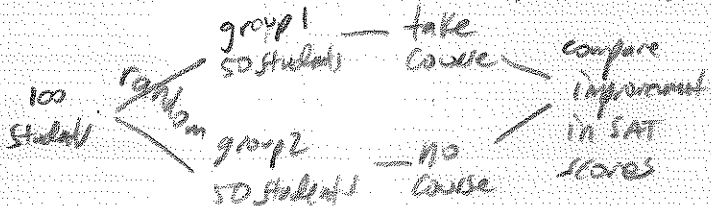 100
students
random
group 1
50 students
take
course
group 2
50 students
no
course
compare
improvement
in SAT
scores